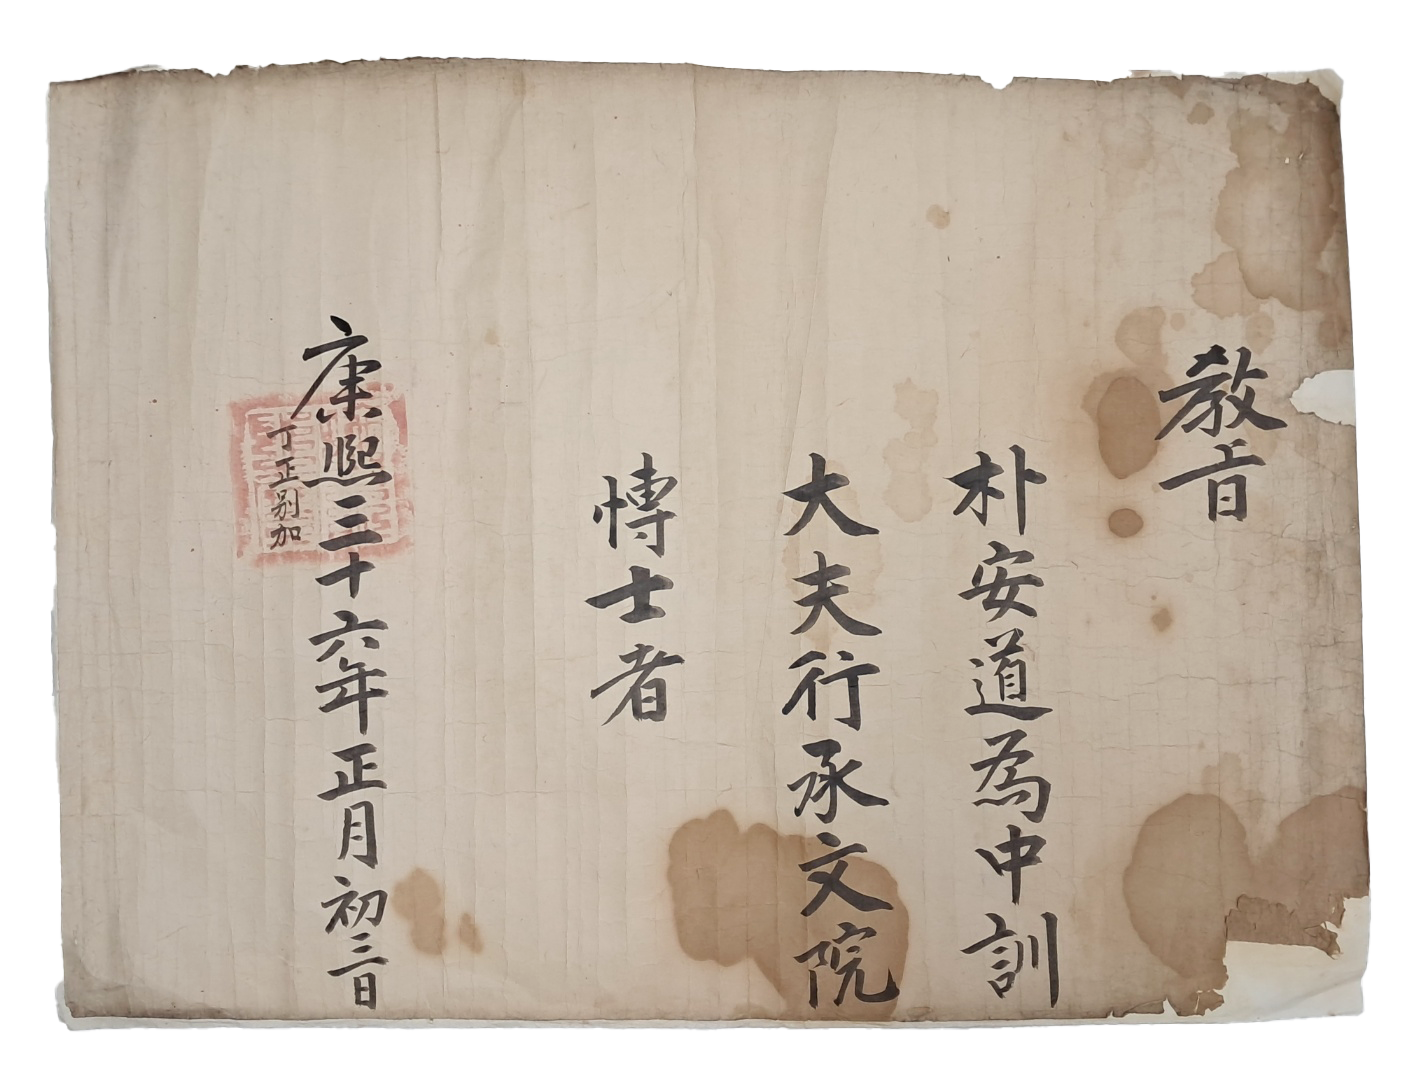 教旨
朴安道為中訓
大夫行承文院
愽士者
康熙三十六年正月初三日
丁正别加